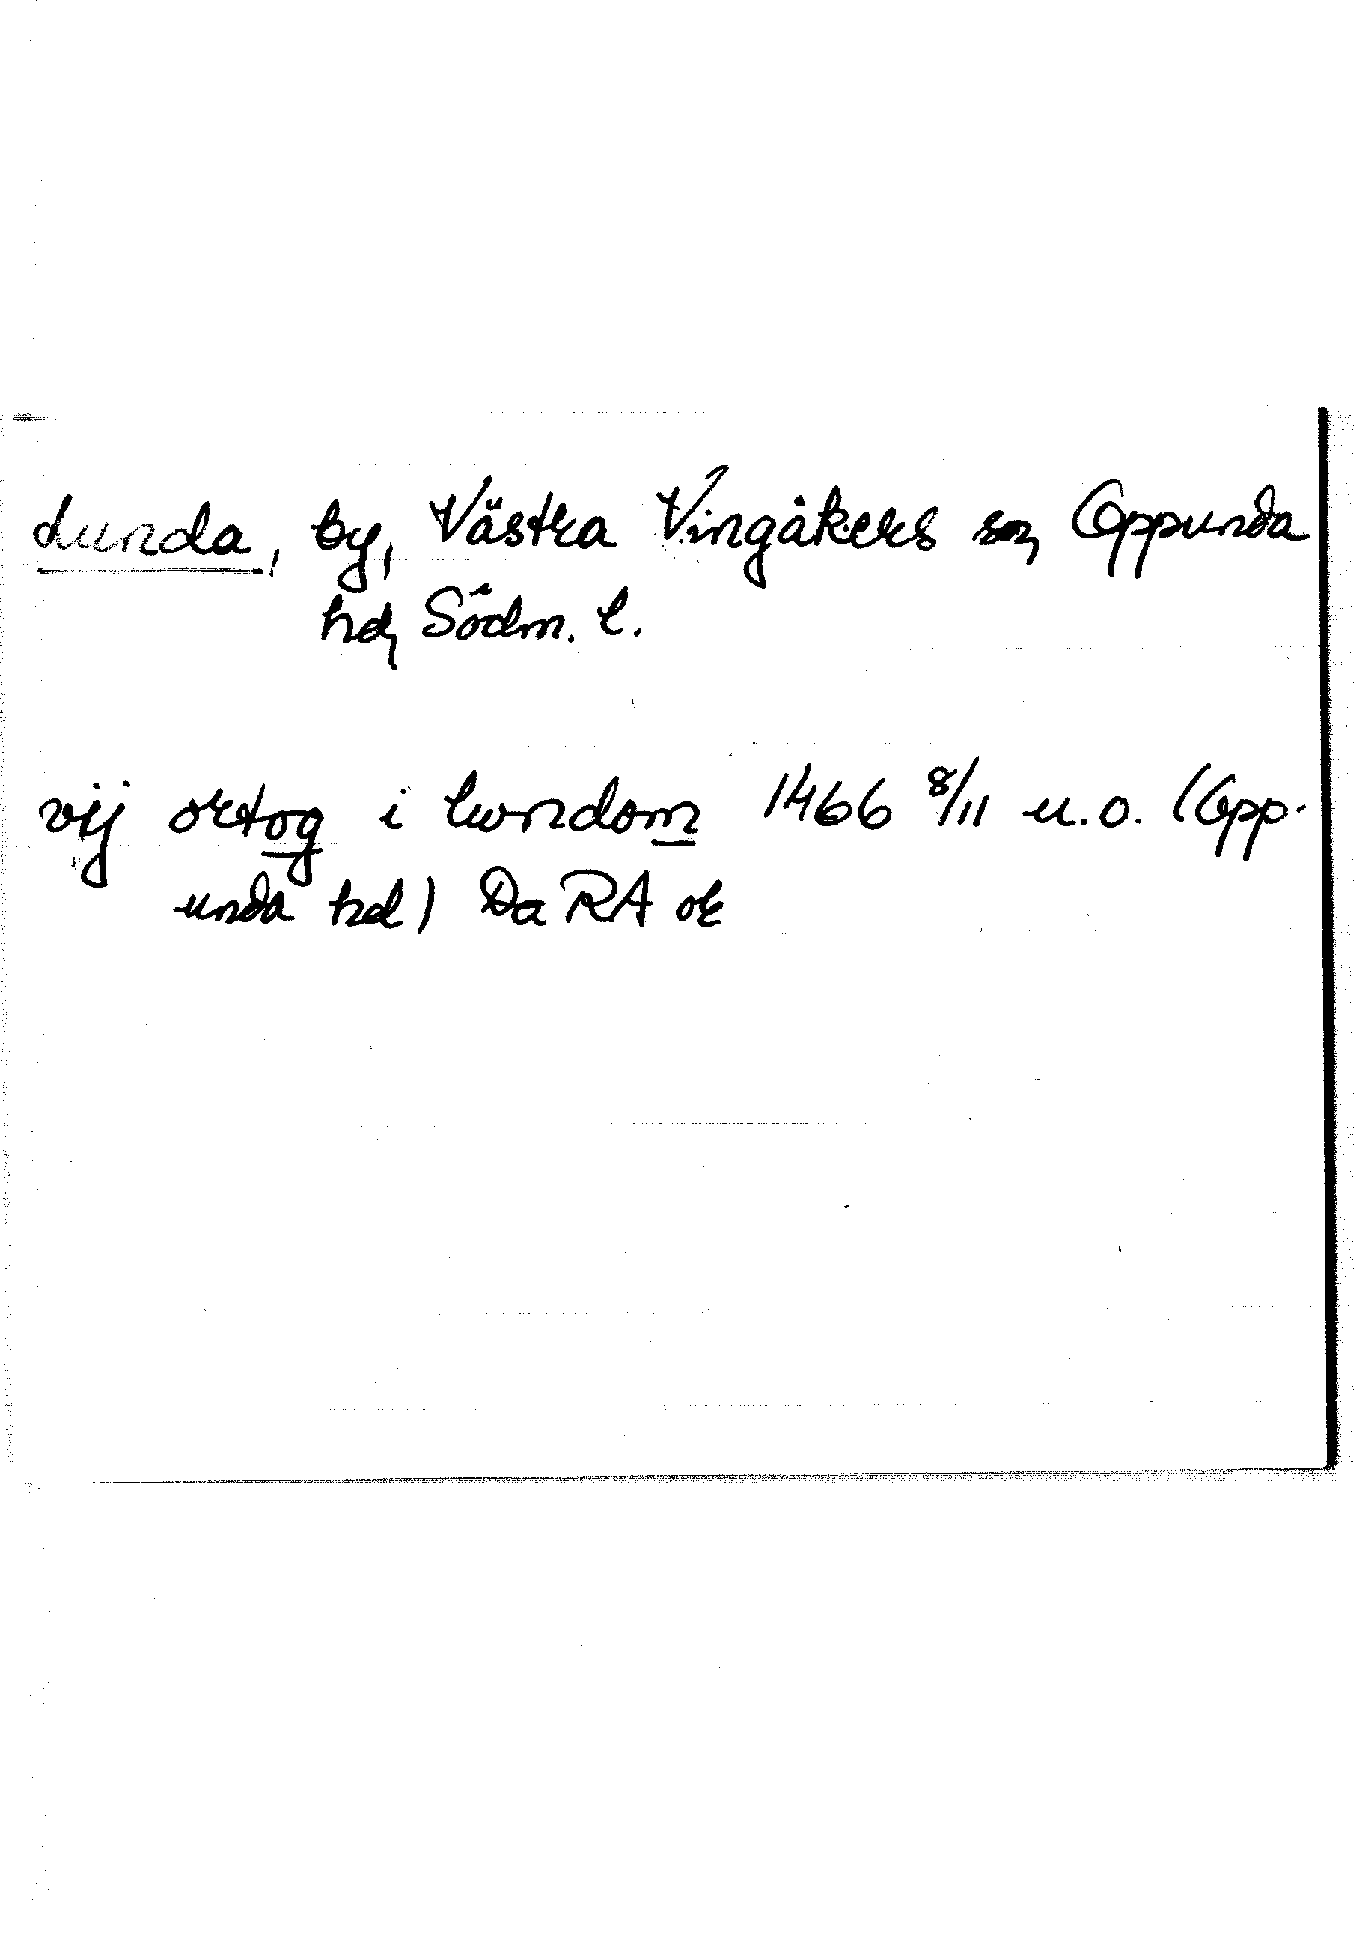 Lunda, by, Västra Vingåkers sn, Oppunda
hd, Södm. l.
vij ortog i lundom 1466 8/11 u.o. (Opp-
unda hd) Da RA or